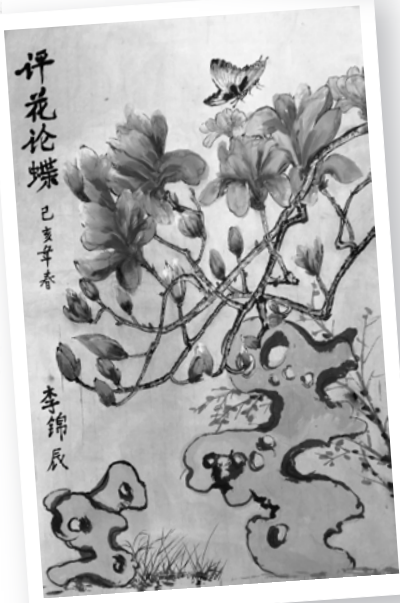 评花论蝶
己亥年春
李锦辰